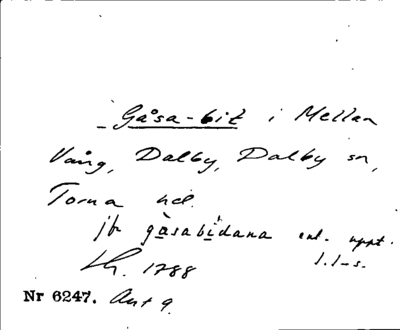 Gåsa-bit i Mellan
Vång, Dalby, Dalby sn,
Torna hd.
jfr gåsabidana enl. uppt.
lh. 1788 1.1-s.
Nr 6247. Ant 9.